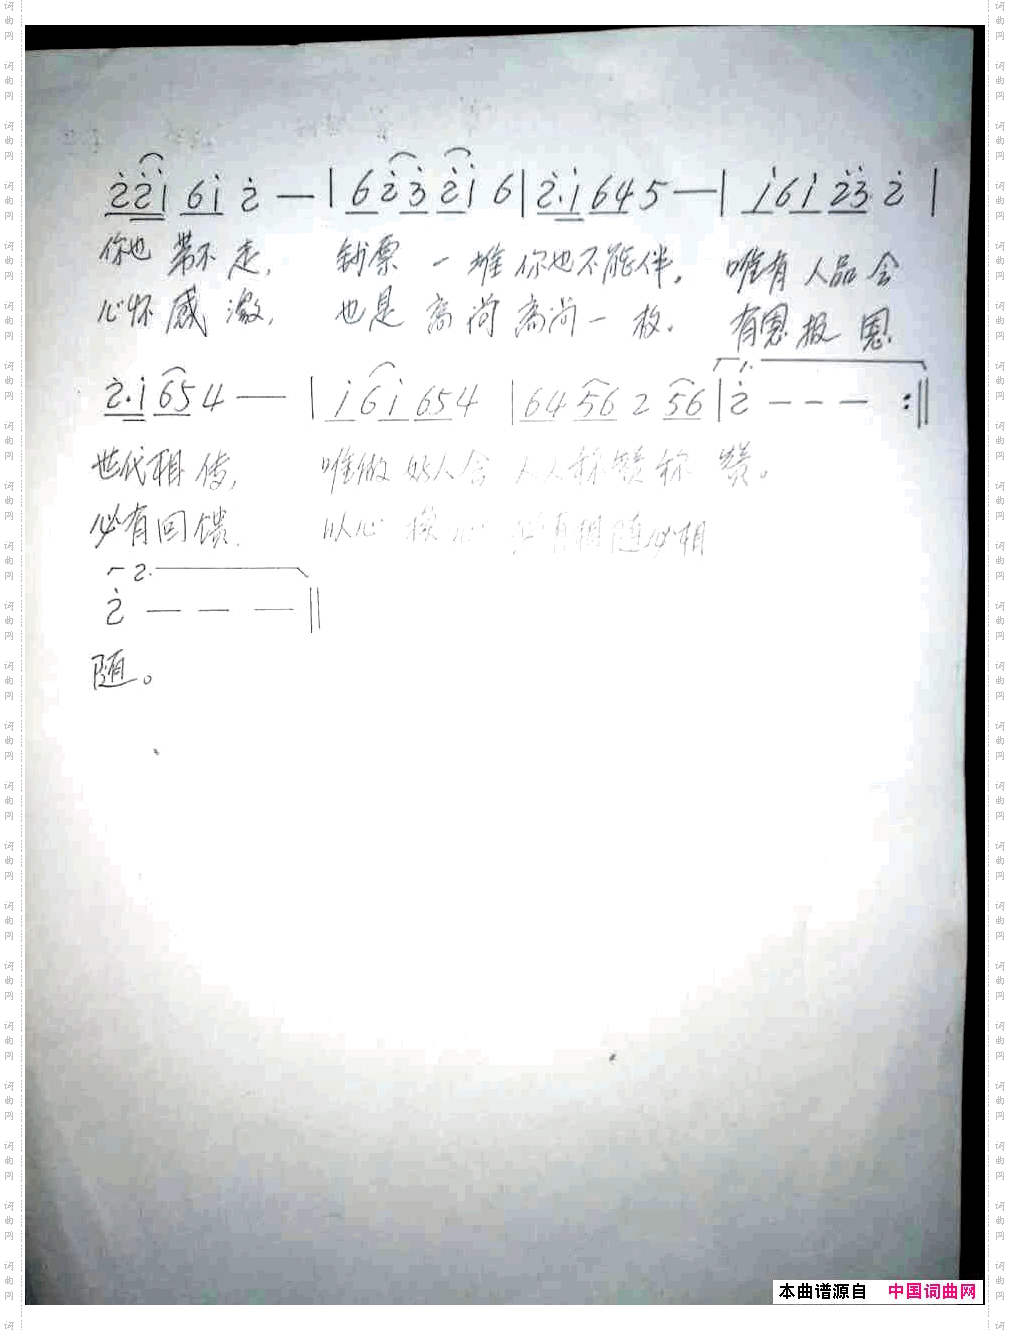 2̇ 2̇ i 6 i 2̇ — | 6 2̇ 3̇ 2̇ i 6 | 2̇ · i 6 4 5 — | i 6 i 2̇ 3̇ 2̇ |
你也 带不 走, 钞票 一 堆 你也不能伴, 唯有 人品 会
心怀 感 激, 也是 高 尚 高尚 一 枚. 有恩 报 恩
2̇ · i 6 5 4 — | i 6 i 6 5 4 | 6 4 5 6 2 5 6 | 1. 2̇ — — — :||
世代相 传, 唯做 好人会 人人称赞称 赞。
必有回馈. 以心 换 心 必有相随必相
2.
2̇ — — — ||
随。
本曲谱源自 中国词曲网
词曲网